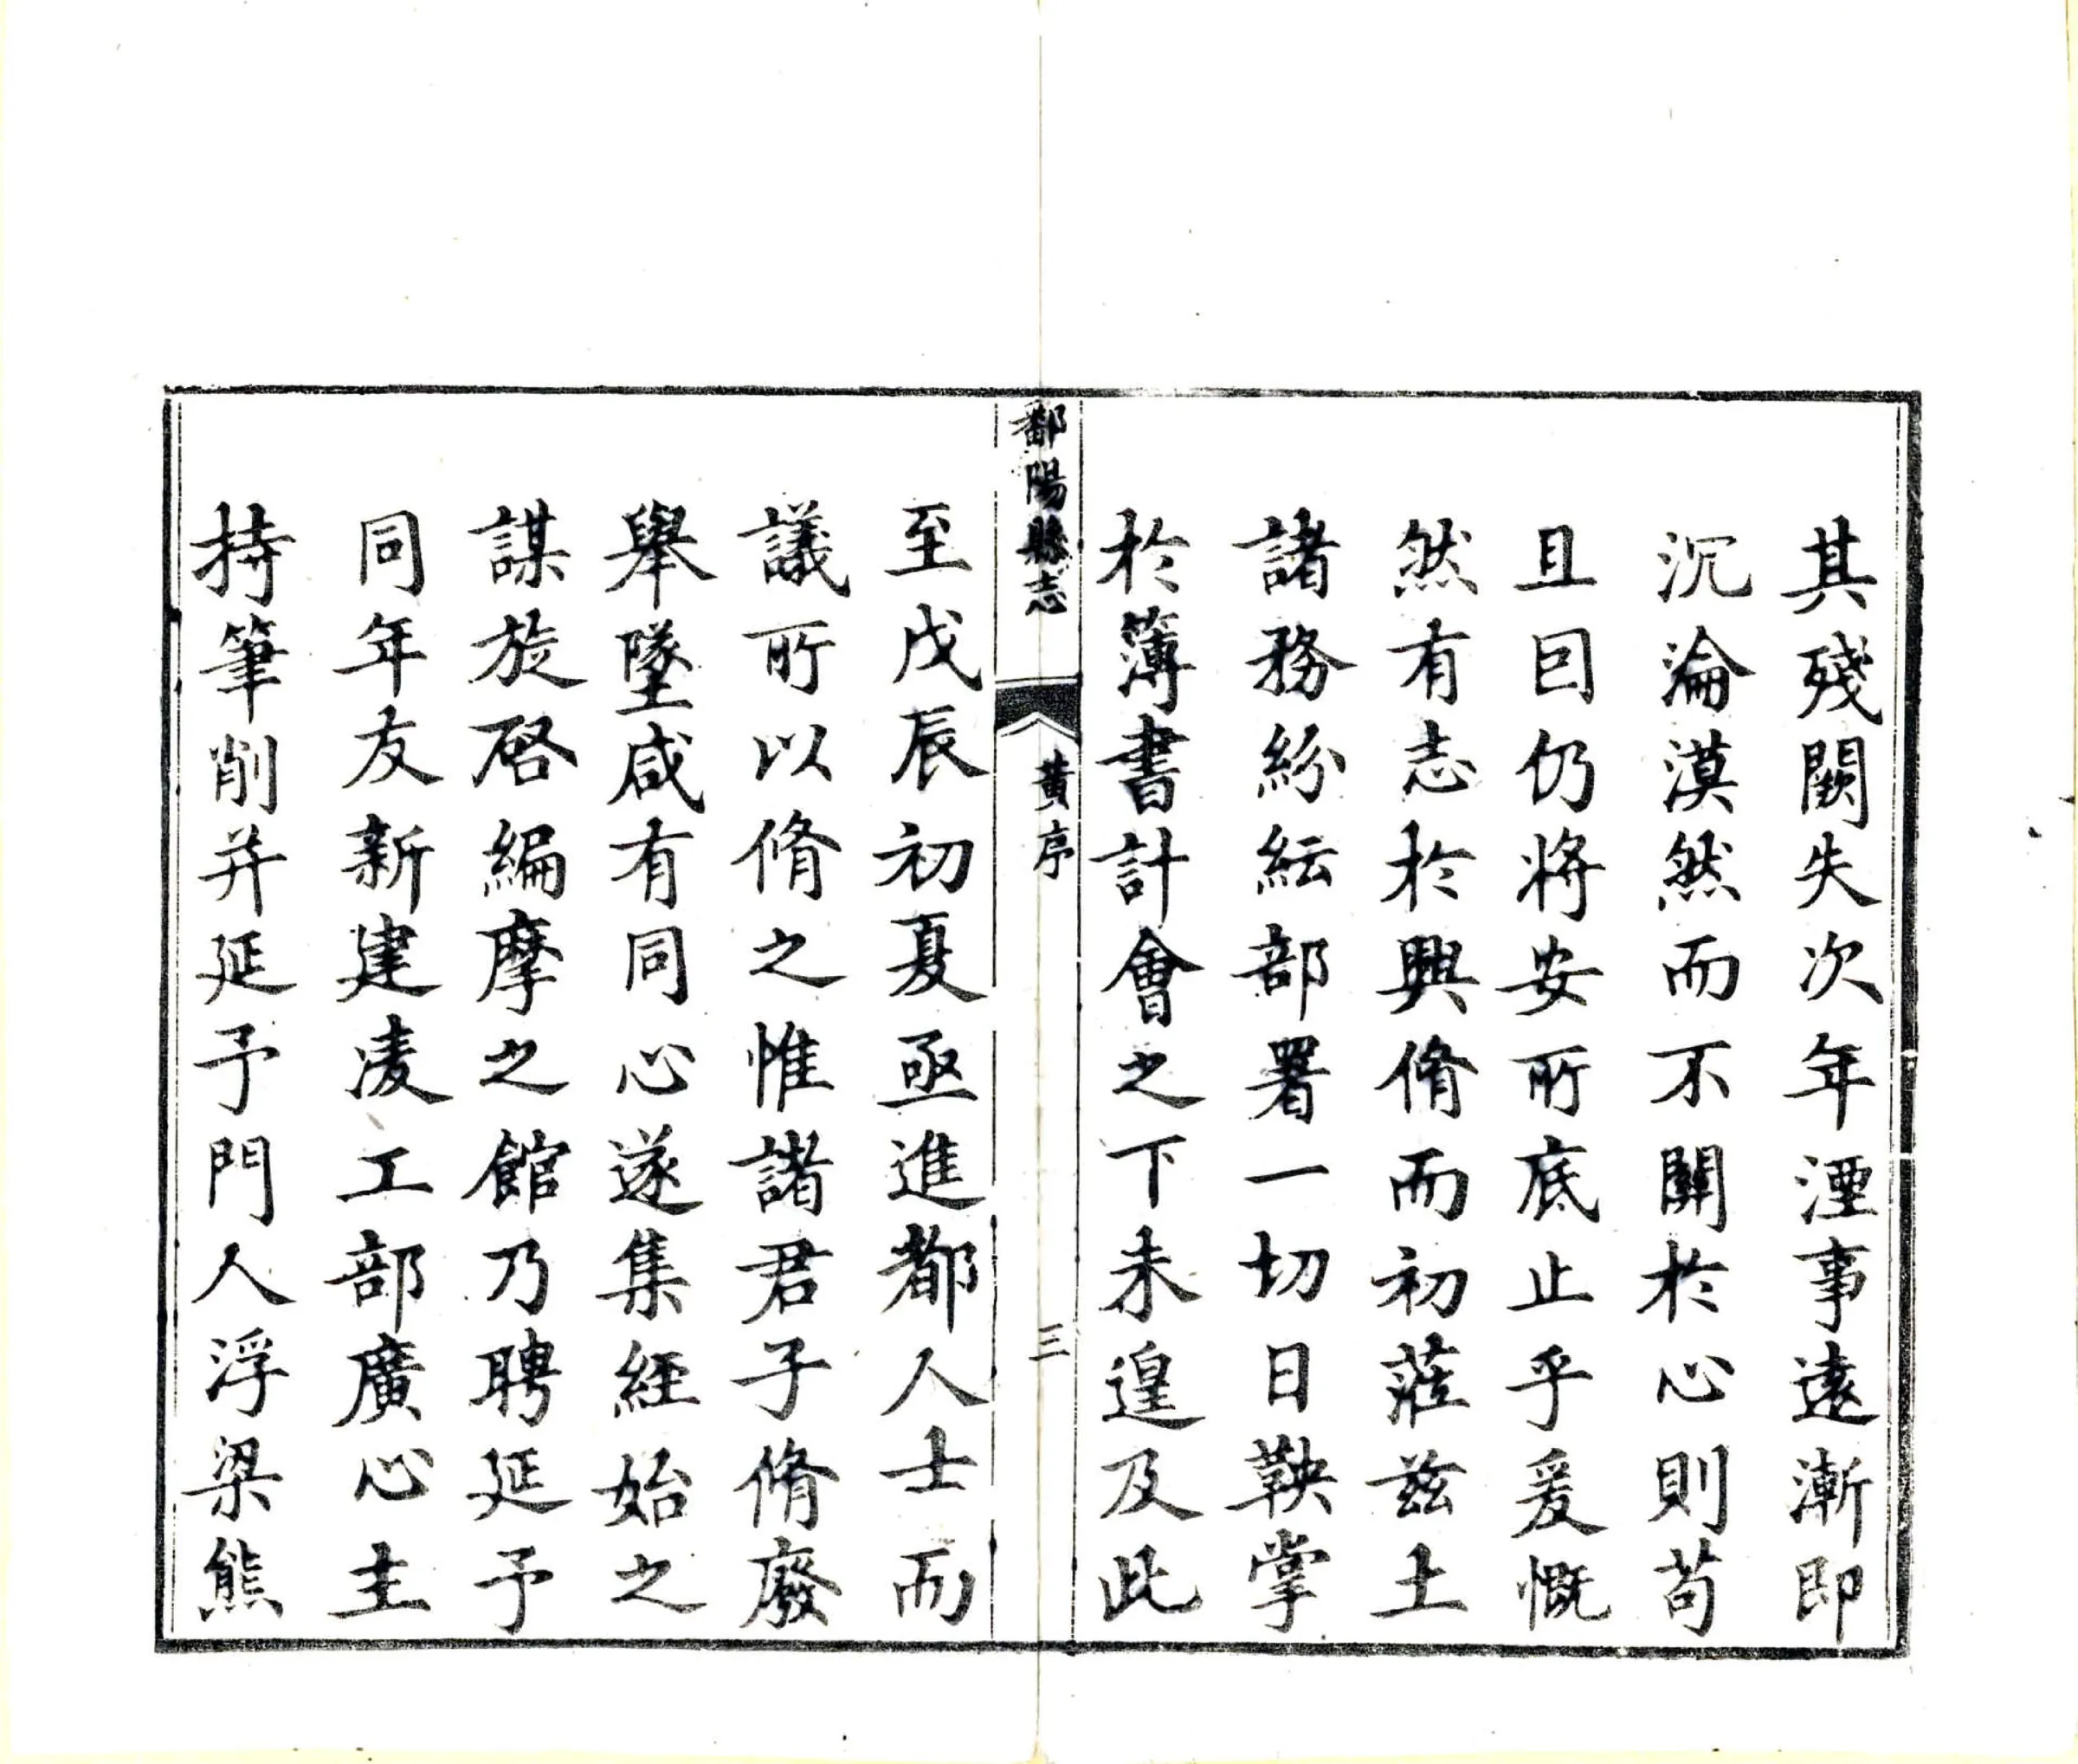 其殘闕失次年湮事遠漸即
沉淪漠然而不關於心則苟
且因仍將安所底止乎爰慨
然有志於興脩而初蒞茲土
諸務紛紜部署一切日鞅掌
於簿書計會之下未遑及此
鄱陽縣志
黄序
三
至戊辰初夏亟進都人士而
議所以脩之惟諸君子脩廢
舉墜咸有同心遂集經始之
謀旋啓編摩之館乃聘延予
同年友新建凌工部廣心主
持筆削并延予門人浮梁熊